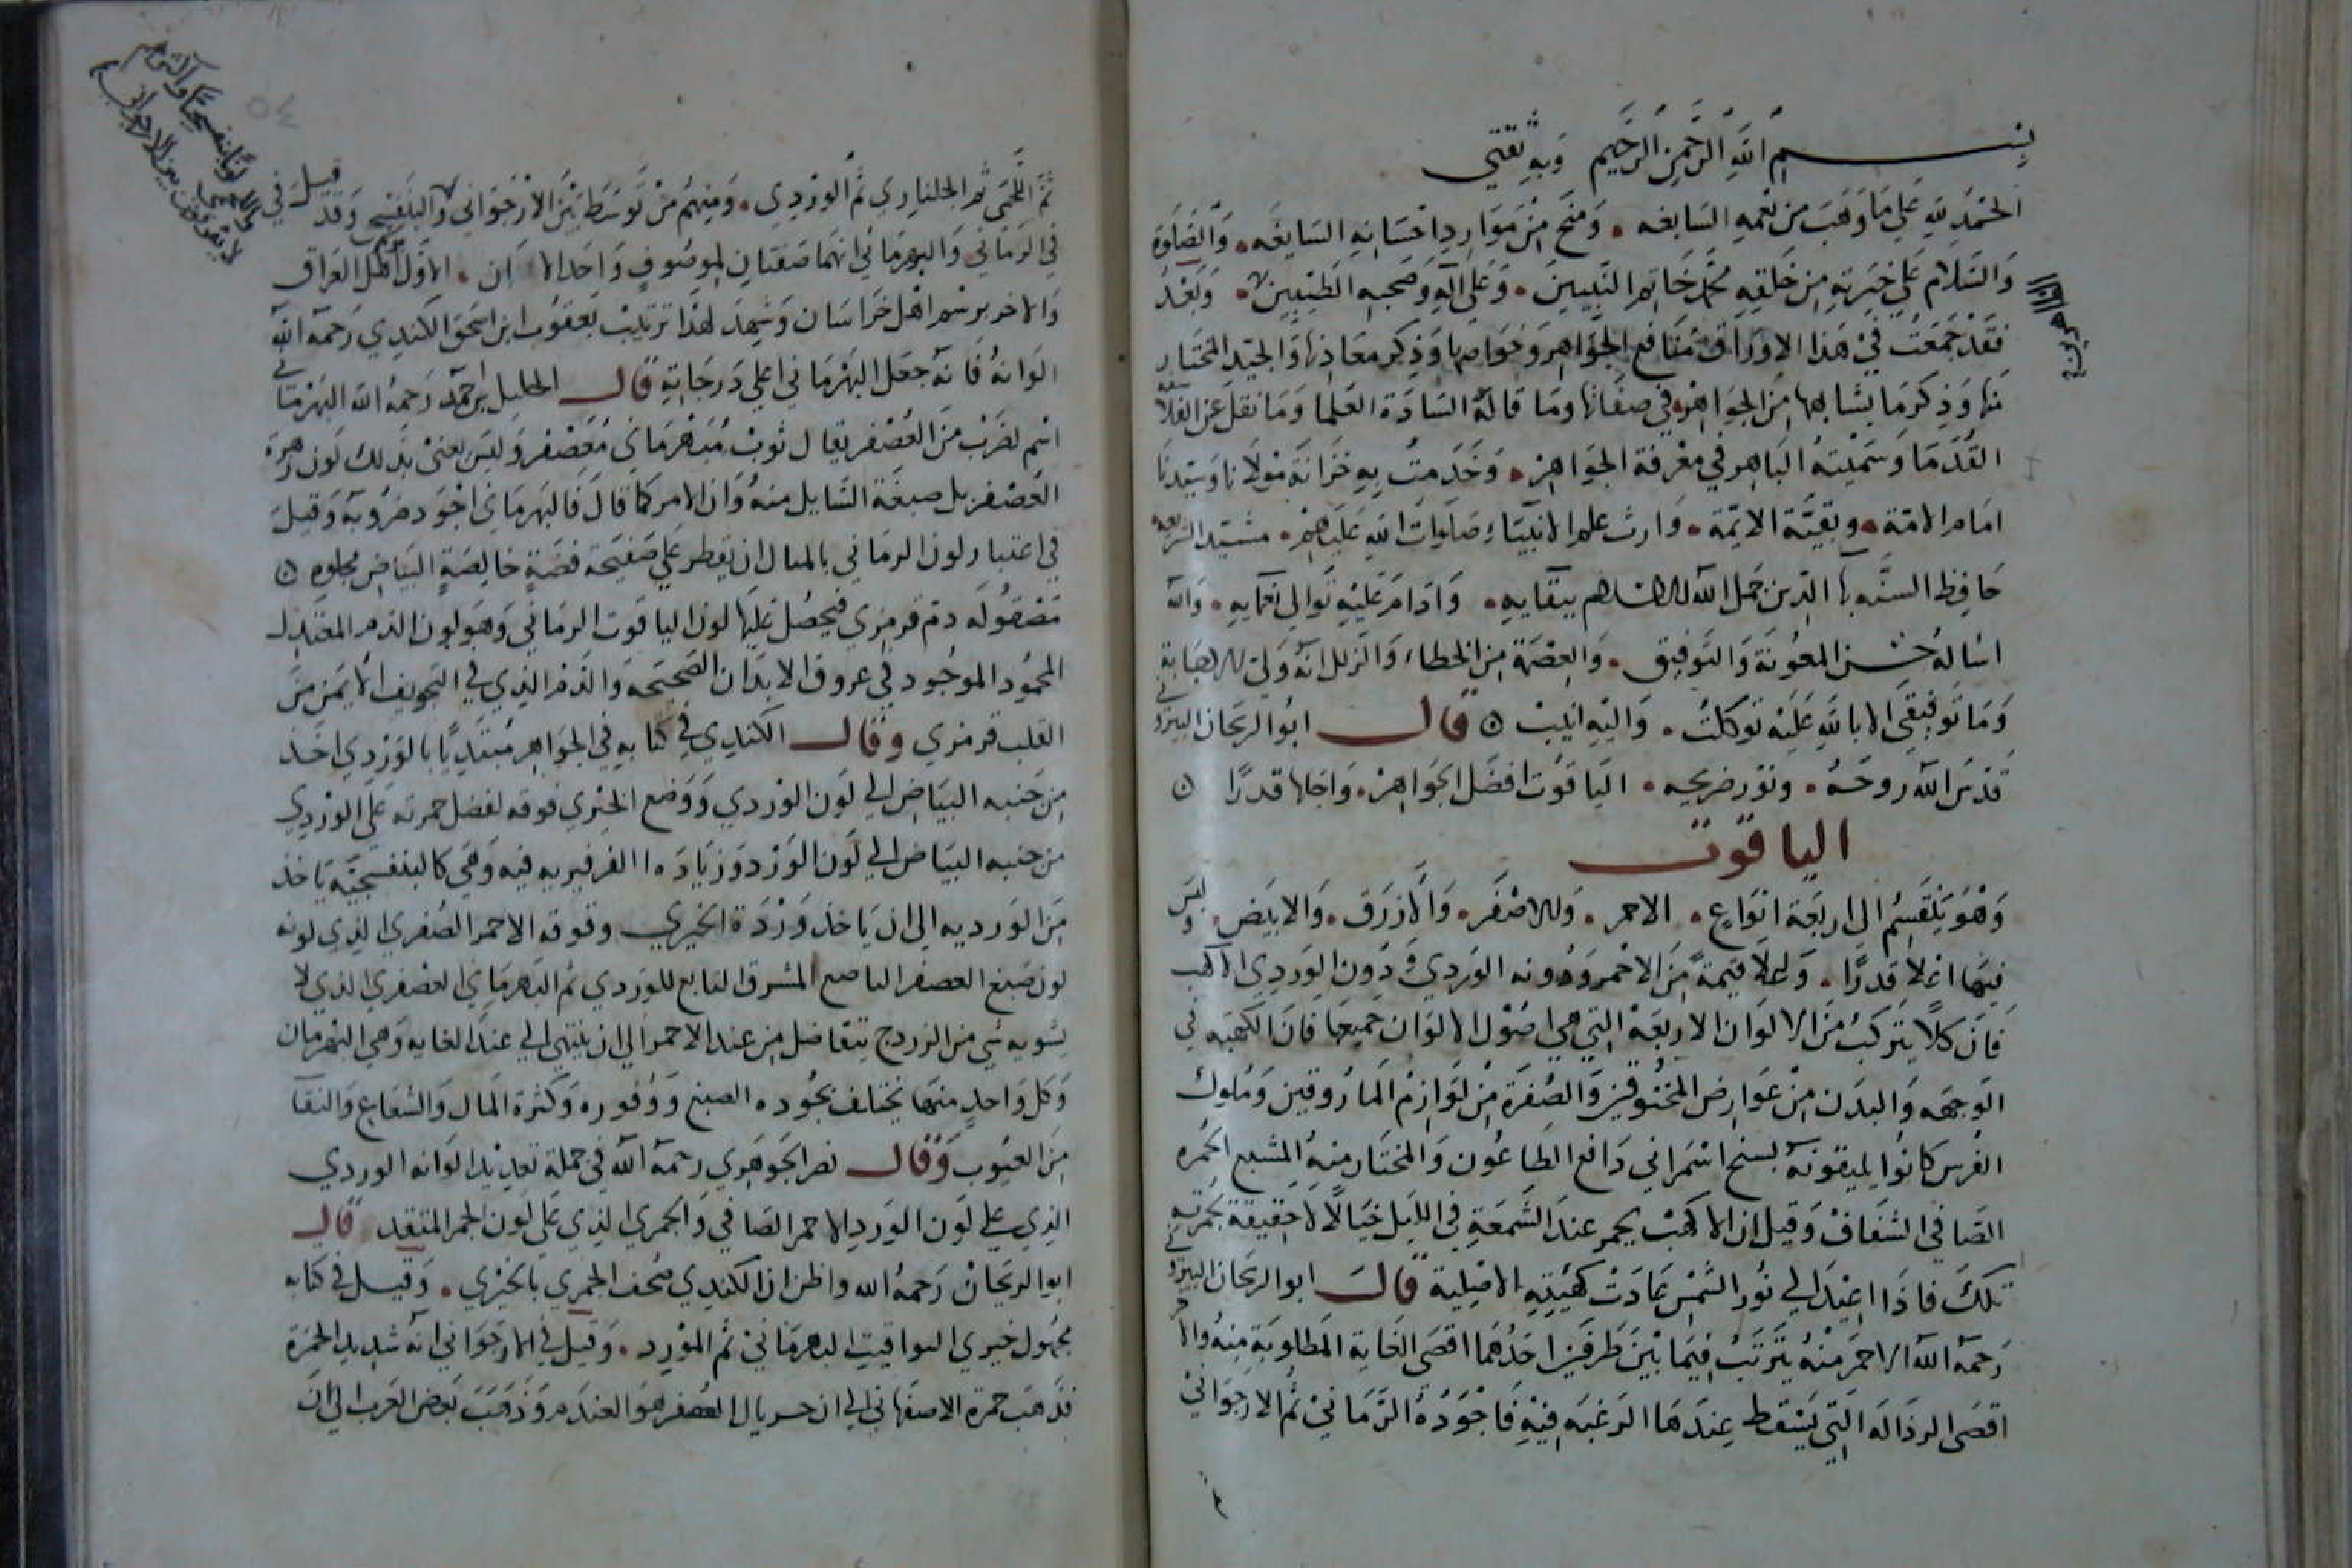 بسم الله الرحمن الرحيم وبه ثقتي
الحمد لله على ما وهب من نعمه السابغه . ومنح من موارد احسانه السايغه . والصلوة
والسلام على خيرته من خلقه محمد خاتم النبيين . وعلى آله وصحبه الطيبين . وبعد
فقد جمعت في هذا الاوراق منافع الجواهر وخواصها وذكر معادنها والجيد المختار
منها وذكر ما يشابهها من الجواهر في صفاتها وما قاله السادة العلما وما نقل عن الفلاسفه
القدما وسميته الباهر في معرفة الجواهر . وخدمت به خزانة مولانا وسيدنا
امام الامة . وبقية الايمة . وارث علم الانبياء صلوات الله عليهم . مشيد الشريعه
حافظ السنه بها الدين جمل الله الاسلام ببقايه . وادام عليه توالي نعمايه . والله
اساله حسن المعونة والتوفيق . والعصمة من الخطاء والزلل انه ولي الاجابة
وما توفيقي الا بالله عليه توكلت . واليه انيب ن قال ابو الريحان البيروني
قدس الله روحه . ونور ضريحه . الياقوت افضل الجواهر . واجلها قدرًا ن
الياقوت
وهو ينقسم الى اربعة انواع . الاحمر . والاصفر . والازرق . والابيض . وليس
فيها اعلا قدرًا . واغلا قيمةً من الاحمر ودونه الوردي ودون الوردي الاكهب
فان كلًا يتركب من الالوان الاربعة التي هي اصول الالوان جميعا فان الكهبه في
الوجه والبدن من عوارض المخنوقين والصفرة من لوازم الماروقين وملوك
الفرس كانوا يلقبونه بسنج اسمراني دافع الطاعون والمختار منه المشبع الحمره
الصافي الشفاف وقيل ان الاكهب يحمر عند الشمعة في الليل خيالًا لا حقيقة بحمرته
تلك فاذا اعيد الى نور الشمس عادت كهبته الاصلية قال ابو الريحان البيروني
رحمه الله الاحمر منه يترتب فيما بين طرفين احدهما اقصى الغاية المطلوبة منه والاخر
اقصى الرذاله التي يسقط عندها الرغبه فيه فاجوده الرماني ثم الارجواني
ثم اللحمي ثم الجلناري ثم الوردي . ومنهم من توسط بين الارجواني والبنفسجي وقد قيل في
في الرماني والبهرماني انهما صفتان لموصوف واحد الا ان . الاول برسم اهل العراق
والاخر برسم اهل خراسان وشهد لهذا ترتيب يعقوب ابن اسحق الكندي رحمه الله
الوانه فانه جعل البهرماني اعلى درجاته قال الخليل بن احمد رحمه الله البهرماني
اسم لضرب من العصفر يقال ثوب مبهرماني معصفر وليس يعني بذلك لون زهرة
العصفر بل صبغة السايل منه وان الامر كما قال فالبهرماني اجود ضروبه وقيل
في اعتبار لون الرماني بالمثال ان يقطر على صفيحة فضة خالصة البياض مجلوه ن
مصقوله دم قرمزي فيحصل عليها لون الياقوت الرماني وهو لون الدم المعتدل
المحمود الموجود في عروق الابدان الصحيحه والدم الذي في التجويف الايمن من
القلب قرمزي وقال الكندي في كتابه في الجواهر مبتديًا بالوردي اخذ
من جنبه البياض الى لون الوردي ووضع الخيري فوقه لفضل حمرته على الوردي
من جنبه البياض الى لون الورد وزياده الفرفيريه فيه وهي كالبنفسجيه ياخذ
من الورديه الى ان ياخذ وردة الخيري وفوقه الاحمر العصفري الذي لونه
لون صبغ العصفر الناصع المشرق التابع للوردي ثم البهرماني العصفري الذي لا
يشوبه شي من الزردج يتفاضل من عند الاحمر الى ان ينتهي الى عند الغايه وهي البهرمان
وكل واحد منها يختلف بجوده الصبغ ووفوره وكثرة المال والشعاع والنقا
من العيوب وقال نصر الجوهري رحمه الله في جملة تعديد الوانه الوردي
الذي على لون الورد الاحمر الصافي والجمري الذي على لون الجمر المتقد قال
ابو الريحان رحمه الله واظن ان الكندي صحف الجمري بالخيري . وقيل في كتابه
مجهول خيري اليواقيت البهرماني ثم المورد . وقيل في الارجواني انه شديد الحمرة
فذهب حمزة الاصفهاني الى ان جريال العصفر هو العندم وذهب بعض العرب الى ان